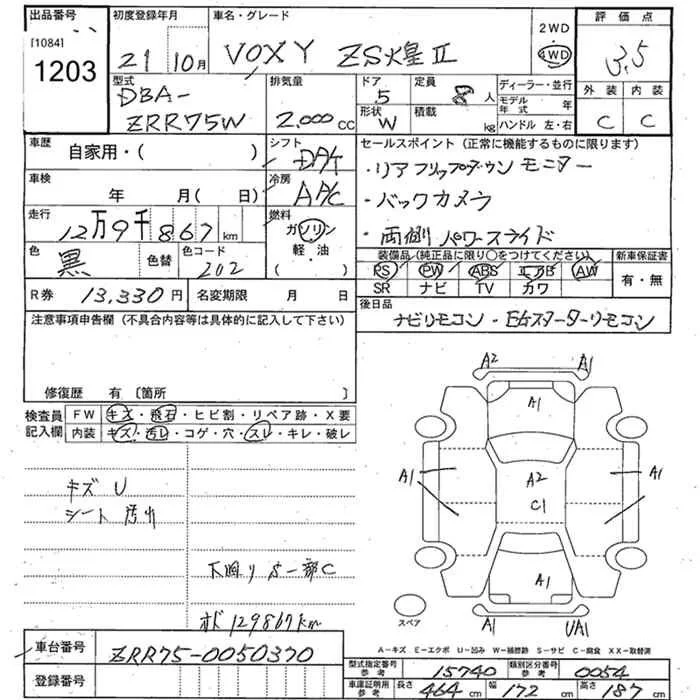 出品番号 初度登録年月 車名・グレード 2WD 評価点
[1084]
1203 21 10月 VOXY ZS煌II 4WD 3.5
型式 排気量 ドア 定員 ディーラー・並行 外装 内装
DBA- 5 8人 モデル年式 年
ZRR75W 2.000cc 形状 積載 C C
W kg ハンドル 左・右
車歴 シフト セールスポイント(正常に機能するものに限ります)
自家用・( ) DAT ・リアフリップダウンモニター
車検 冷房
年 月( 日) A/C ・バックカメラ
走行 燃料
12万9千867km ガソリン ・両側パワースライド
色 色替 色コード 軽・油 装備品(純正品に限り○をつけてください) 新車保証書
黒 202 ・ PS PW ABS エアB AW 有・無
( ) SR ナビ TV カワ
R券 13,330円 名変期限 月 日 後日品
注意事項申告欄(不具合内容等は具体的に記入して下さい) ナビリモコン・EGスターターリモコン
修復歴 有〔箇所 〕
検査員 FW キズ・飛石・ヒビ割・リペア跡・X要
記入欄 内装 キズ・汚レ・コゲ・穴・スレ・キレ・破レ
A2 A1
A1
A1 A2 A1
C1
キズ U
シート汚れ
下廻りS一部C
A1
オド129867km
A1 UA1
スペア
A-キズ E-エクボ U-凹み W-補修跡 S-サビ C-腐食 XX-取替済
車台番号 ZRR75-0050370
型式指定番号 参考 15740 類別区分番号 参考 0054
登録番号 車庫証明用 参考 長さ 464cm 幅 172cm 高さ 187cm